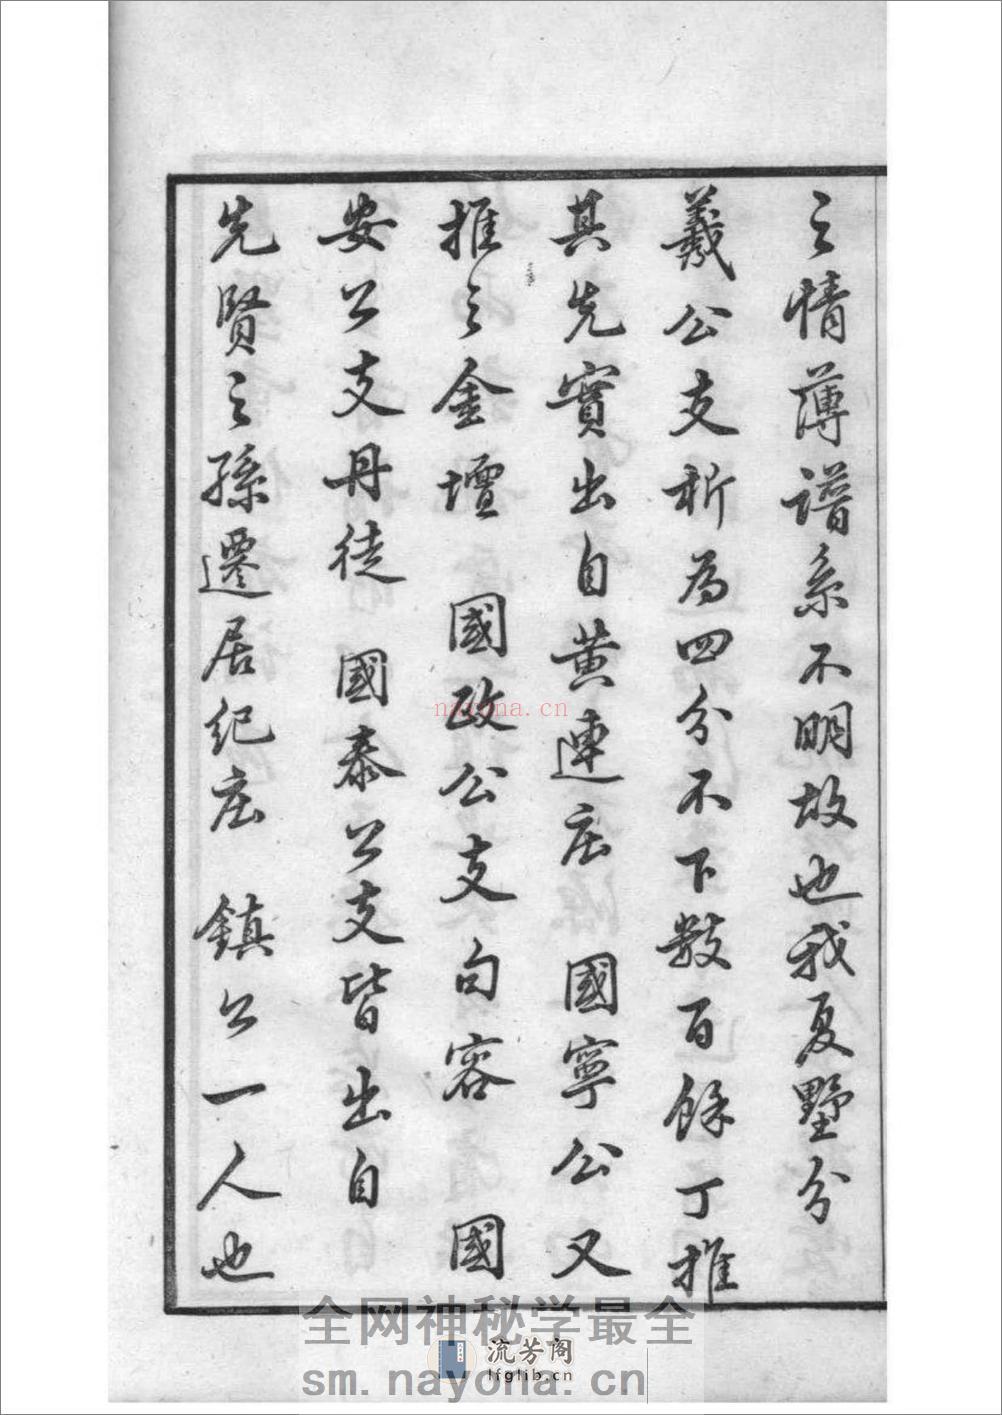 之情薄譜系不明故也我夏墅分
羲公支析為四分不下數百餘丁推
其先實出自黄連庄 國寧公又
推之金壇 國政公支句容 國
安公支丹徒 國泰公支皆出自
先賢之孫遷居纪庄 鎮公一人也
nayona.cn
全网神秘学最全
流芳阁
lfglib.cn
sm.nayona.cn